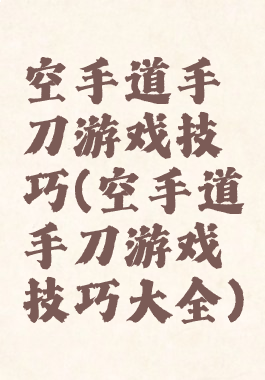 空手道手
刀游戏技
巧(空手道
手刀游戏
技巧大全)